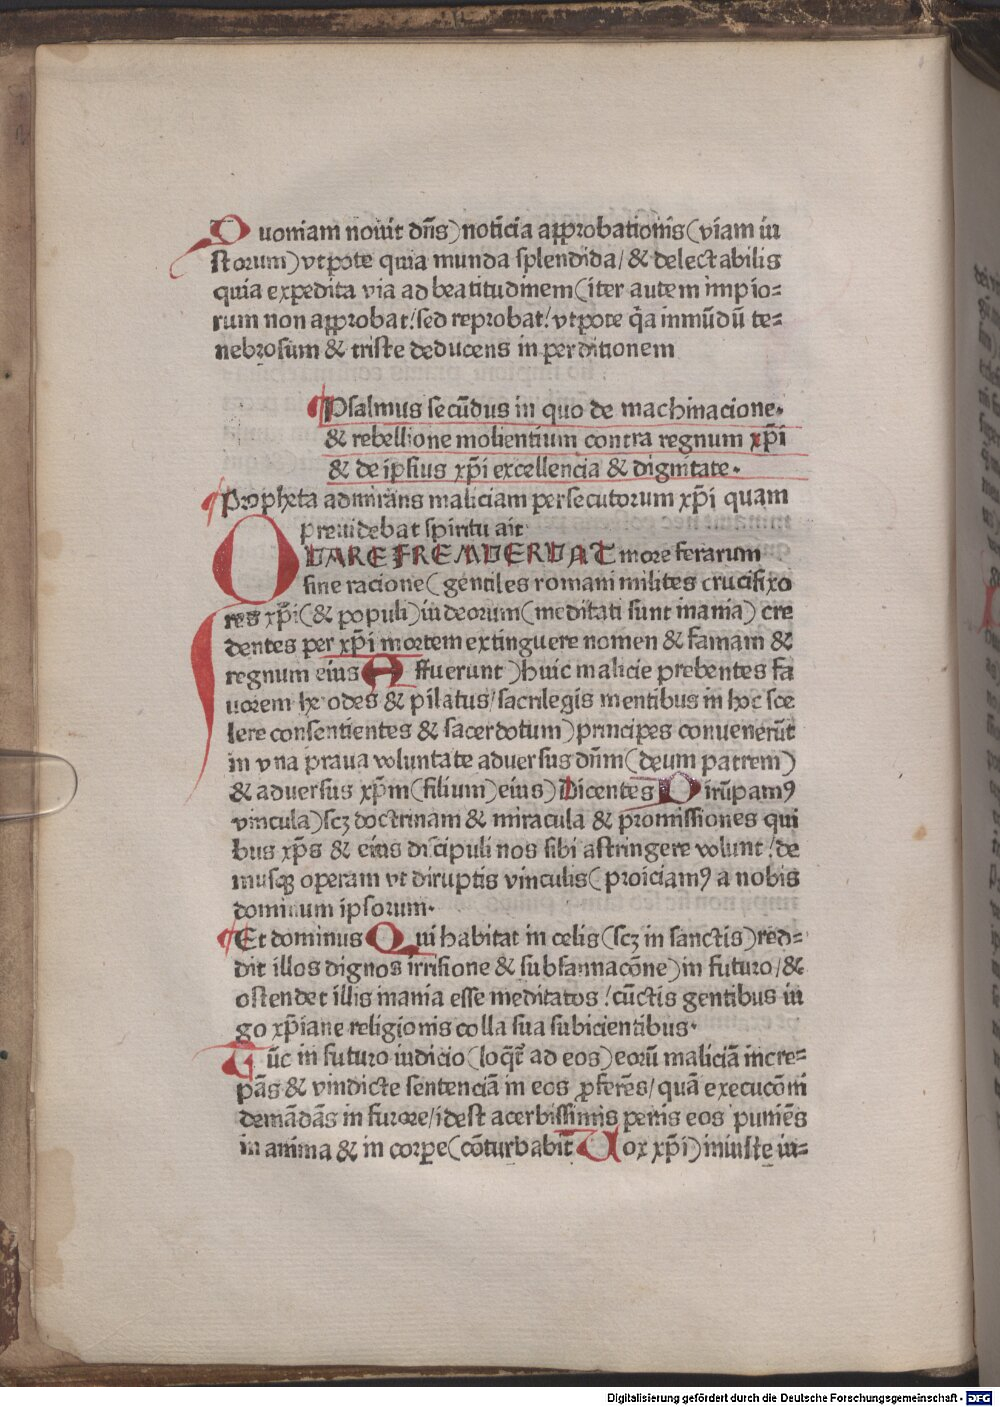 Quoniam nouit dn̄s) noticia approbationis (viam iu
storum) vtpote quia munda splendida/ & delectabilis
quia expedita via ad beatitudinem (iter autem impio=
rum non approbat/ sed reprobat/ vtpote q̄a inmūdū te=
nebrosum & triste deducens in perditionem
¶Psalmus secūdus in quo de machinacione.
& rebellione molientium contra regnum xp̄i
& de ipsius xp̄i excellencia & dignitate.
¶Propheta admirans maliciam persecutorum xp̄i quam
preuidebat spiritu ait
QUARE FREMUERUNT more ferarum
sine racione (gentiles romani milites crucifixo
res xp̄i (& populi) iudeorum (meditati sunt inania) cre
dentes per xp̄i mortem extinguere nomen & famam &
regnum eius Affuerunt) huic malicie prebentes fa
uorem herodes & pilatus/ sacrilegis mentibus in hoc sce
lere consentientes & sacerdotum) principes conuenerūt
in vna praua voluntate aduersus dn̄m (deum patrem)
& aduersus xp̄m (filium) eius) Dicentes Dirūpamꝰ
vincula) scꝫ doctrinam & miracula & promissiones qui
bus xp̄s & eius discipuli nos sibi astringere volunt/ de
musqꝫ operam vt diruptis vinculis (proiciamꝰ a nobis
dominum ipsorum.
¶Et dominus Qui habitat in celis (scꝫ in sanctis) red=
dit illos dignos irrisione & subsannacōne) in futuro/ &
ostendet illis inania esse meditatos/ cūctis gentibus iu
go xp̄iane religionis colla sua subicientibus.
Tūc in futuro iudicio (loq̄t̄ ad eos) eorū maliciā incre=
pās & vindicte sentenciā in eos ꝓferēs/ quā execucōni
demādās in furore/ idest acerbissimis penis eos puniēs
in anima & in corpe (cōturbabit̄ Uox xp̄i) iniuste iu=
Digitalisierung gefördert durch die Deutsche Forschungsgemeinschaft - DFG